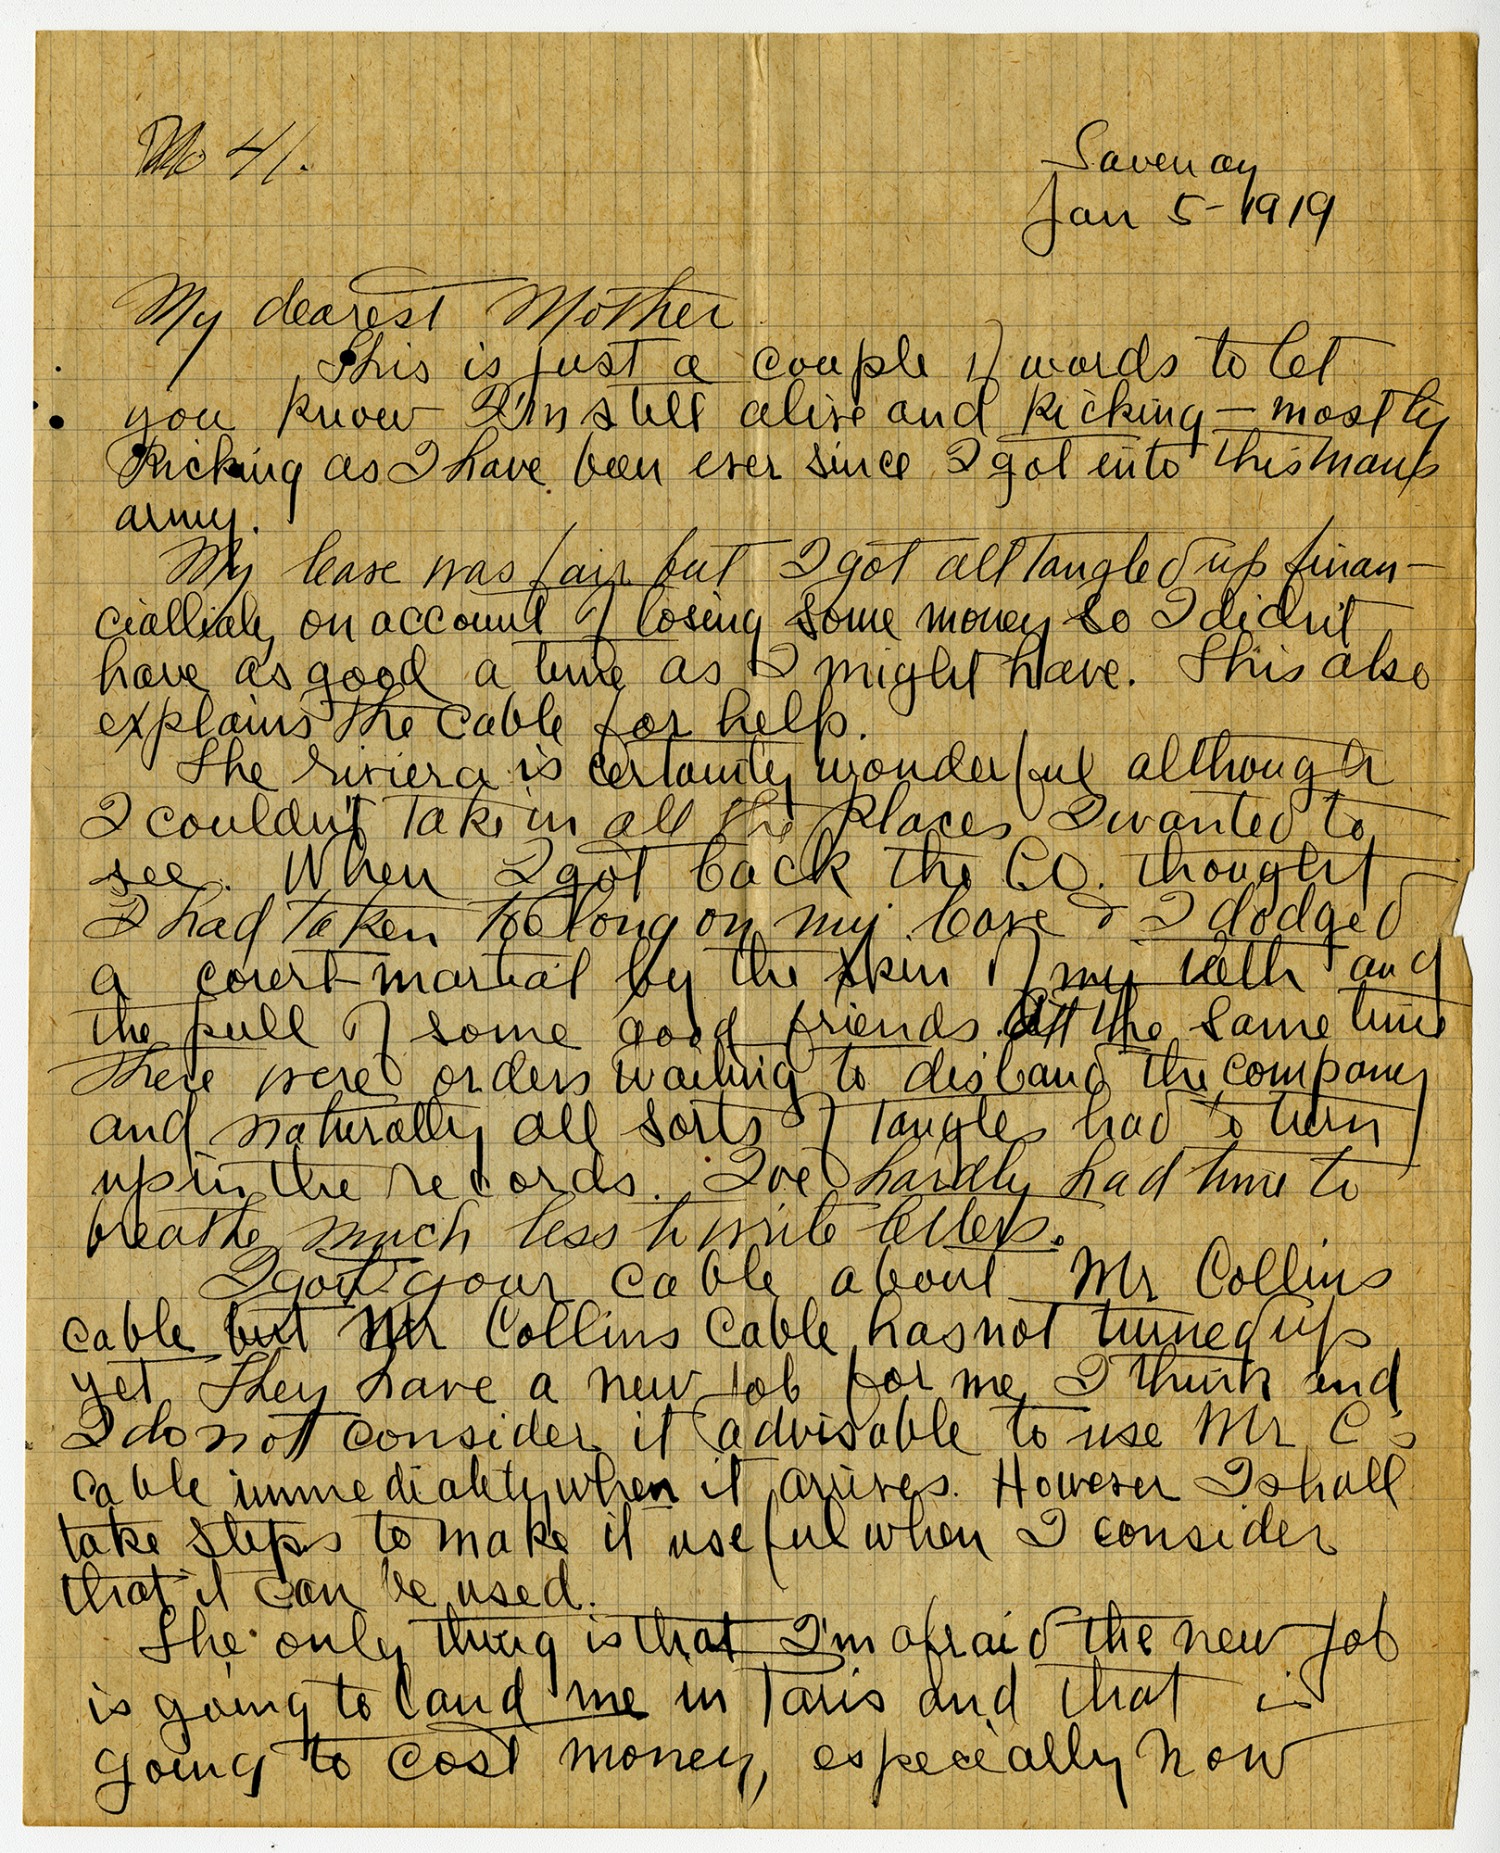 No 41.
Savenay
Jan 5-1919
My dearest Mother
This is just a couple of words to let
you know I'm still alive and kicking - mostly
kicking as I have been ever since I got into this mans
army.
My leave was fair but I got all tangled up finan-
cially on account of losing some money so I didn't
have as good a time as I might have. This also
explains the cable for help.
The riviera is certainly wonderful although
I couldn't take in all the places I wanted to
see. When I got back the CO. thought
I had taken too long on my leave & I dodged
a court-martial by the skin of my teeth and
the pull of some good friends. At the same time
there were orders waiting to disband the company
and naturally all sorts of tangles had to turn
up in the records. I've hardly had time to
breathe much less to write letters.
I got your cable about Mr Collins
cable but Mr Collins cable has not turned up
yet. They have a new job for me I think and
I do not consider it advisable to use Mr C's
cable immediately when it arrives. However I shall
take steps to make it useful when I consider
that it can be used.
The only thing is that I'm afraid the new job
is going to land me in Paris and that is
going to cost money, especially now